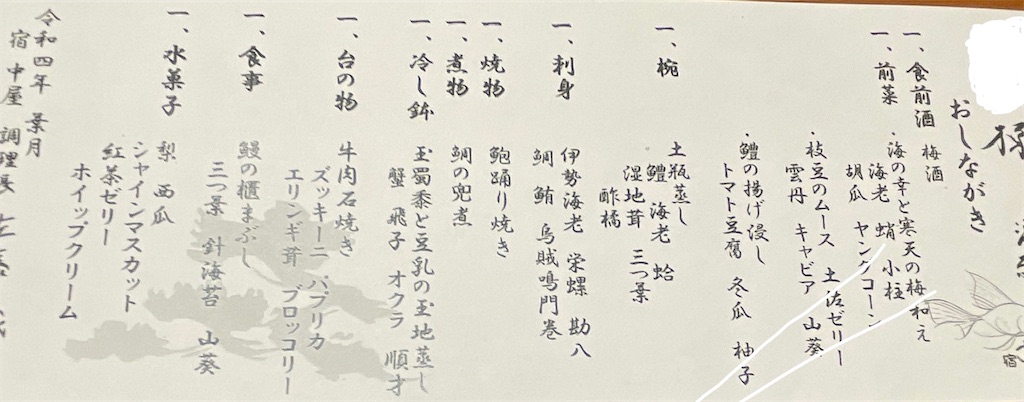 おしながき
一、食前酒 梅酒
一、前菜 ・海の幸と寒天の梅和え
海老 蛸 小柱
胡瓜 ヤングコーン
・枝豆のムース 土佐ゼリー
雲丹 キャビア 山葵
・鱧の揚げ浸し
トマト豆腐 冬瓜 柚子
一、椀 土瓶蒸し
鱧 海老 蛤
湿地茸 三つ葉
酢橘
一、刺身 伊勢海老 栄螺 勘八
鯛 鮪 烏賊鳴門巻
一、焼物 鮑踊り焼き
一、煮物 鯛の兜煮
一、冷し鉢 玉蜀黍と豆乳の玉地蒸し
蟹 飛子 オクラ 順才
一、台の物 牛肉石焼き
ズッキーニ パプリカ
エリンギ茸 ブロッコリー
一、食事 鰻の櫃まぶし
三つ葉 針海苔 山葵
一、水菓子 梨 西瓜
シャインマスカット
紅茶ゼリー
ホイップクリーム
令和四年 葉月
宿 中屋 調理長
宿